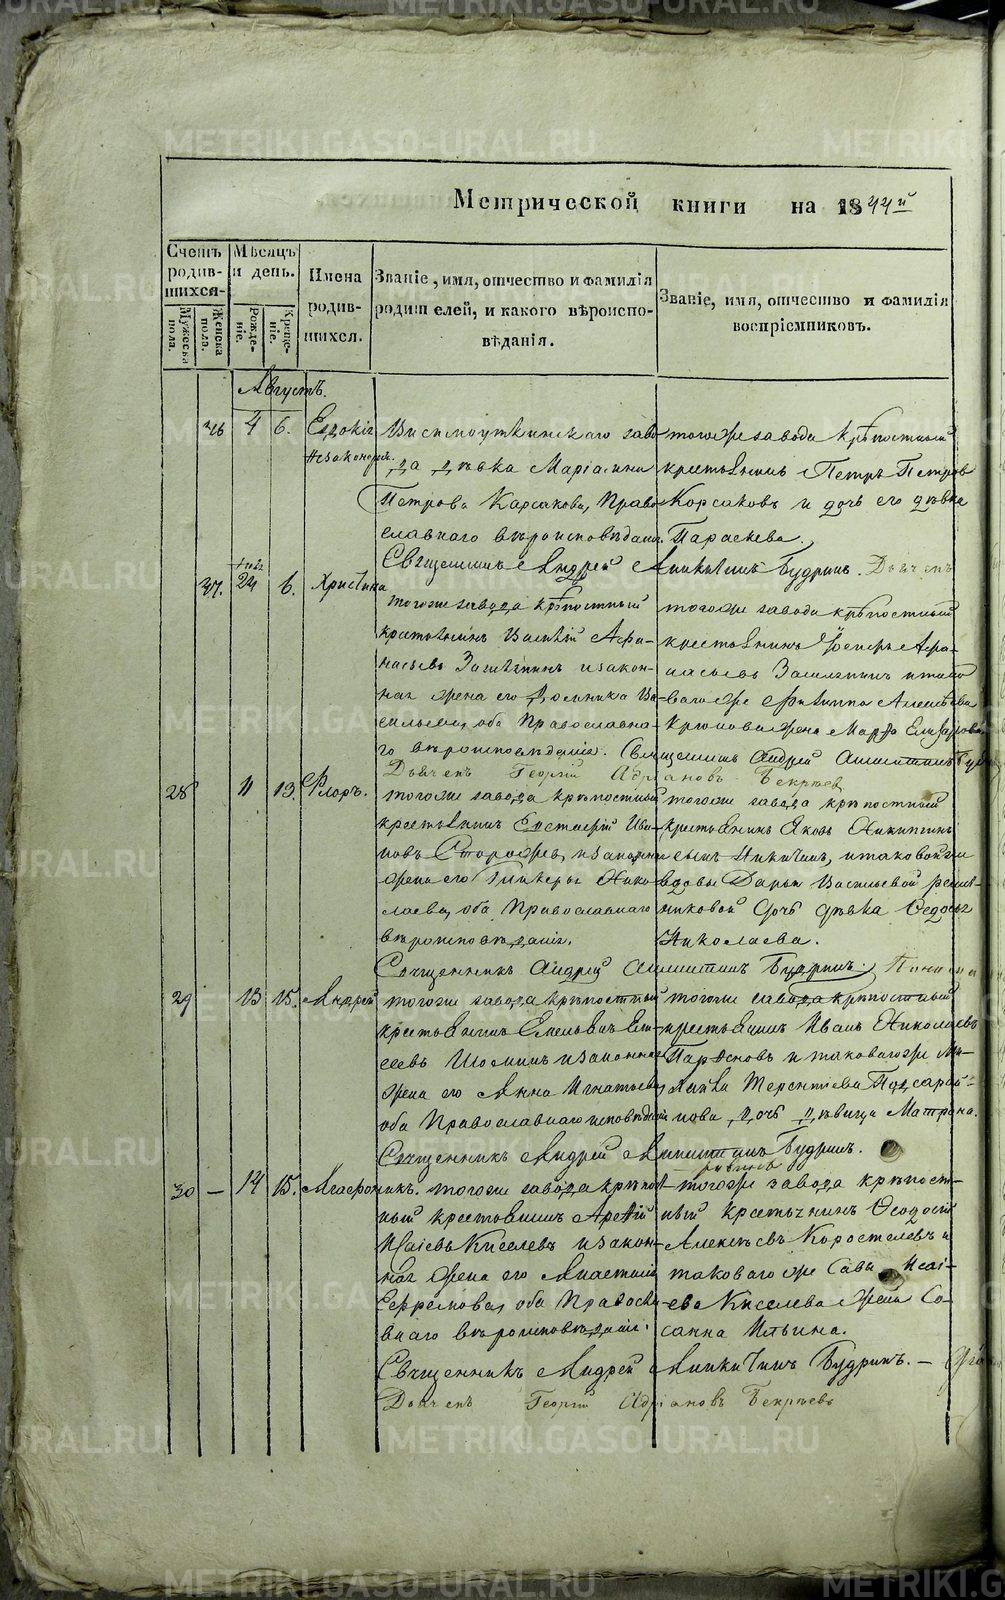 METRIKI.GASO-URAL.RU
Метрической книги на 1844й
Счетъ родив-шихся.
Мужеска пола.
Женска пола.
Мѣсяцъ и день.
Рожде-ніе.
Креще-ніе.
Имена родив-шихся.
Званіе, имя, отчество и фамилія
родителей, и какого вѣроиспо-
вѣданія.
Званіе, имя, отчество и фамилія
воспріемниковъ.
Августъ.
36 4 6. Евдокія
незаконорж.
заво-
да дѣвка
Петрова Карсакова, Право-
славнаго вѣроисповѣданія.
тогоже завода крѣпостный
крестьянинъ Петръ Петровъ
Корсаковъ и дочь его дѣвка
Параскева.
Священникъ Андрей Никитинъ Будринъ.
37. 24 6. Христина
тогоже завода крѣпостный
крестьянинъ Василій Афа-
насьевъ и закон-
ная жена его Домника Ва-
сильева, оба Православна-
го вѣроисповѣданія.
тогоже завода крѣпостный
крестьянинъ Афа-
насьевъ
ваго же Филиппа Алексѣева
жена Марфа
Священникъ Андрей Никитинъ
Дьячекъ Георгій Адріановъ Бекряевъ
28 11 13. Флоръ.
тогоже завода крѣпостный
крестьянинъ Евстафій Ива-
новъ Сторожевъ, и законная
жена его Гликерья Нико-
лаева, оба Православнаго
вѣроисповѣданія.
тогоже завода крѣпостный
крестьянинъ Яковъ Никитинъ
сынъ Никитинъ, и таковой же
вдовы Дарьи Васильевой
дочь дѣвка Федосья
Николаева.
Священникъ Андрей Никитинъ Будринъ.
29 13 15. Андрей
тогоже завода крѣпостный
крестьянинъ Емельянъ Ели-
сеевъ и законная
жена его Анна Игнатьева
оба Православнаго исповѣданія
тогоже завода крѣпостный
крестьянинъ Иванъ Николаевъ
и таковаго же
Терентіева
дочь дѣвица Матрона.
Священникъ Андрей Никитинъ Будринъ.
30 — 14 15. Агафоникъ.
тогоже завода крѣпост-
ный крестьянинъ Арефій
Исаіевъ Киселевъ и закон-
ная жена его Анастасія
Сефремова, оба Правосла-
внаго вѣроисповѣданія.
тогоже завода крѣпост-
ный крестьянинъ Феодосій
Алексѣевъ Коростелевъ и
таковаго же Савы Исаі-
ева Киселева жена Со-
санна Ильина.
Священникъ Андрей Никитинъ Будринъ. —
Дьячекъ Георгій Адріановъ Бекряевъ